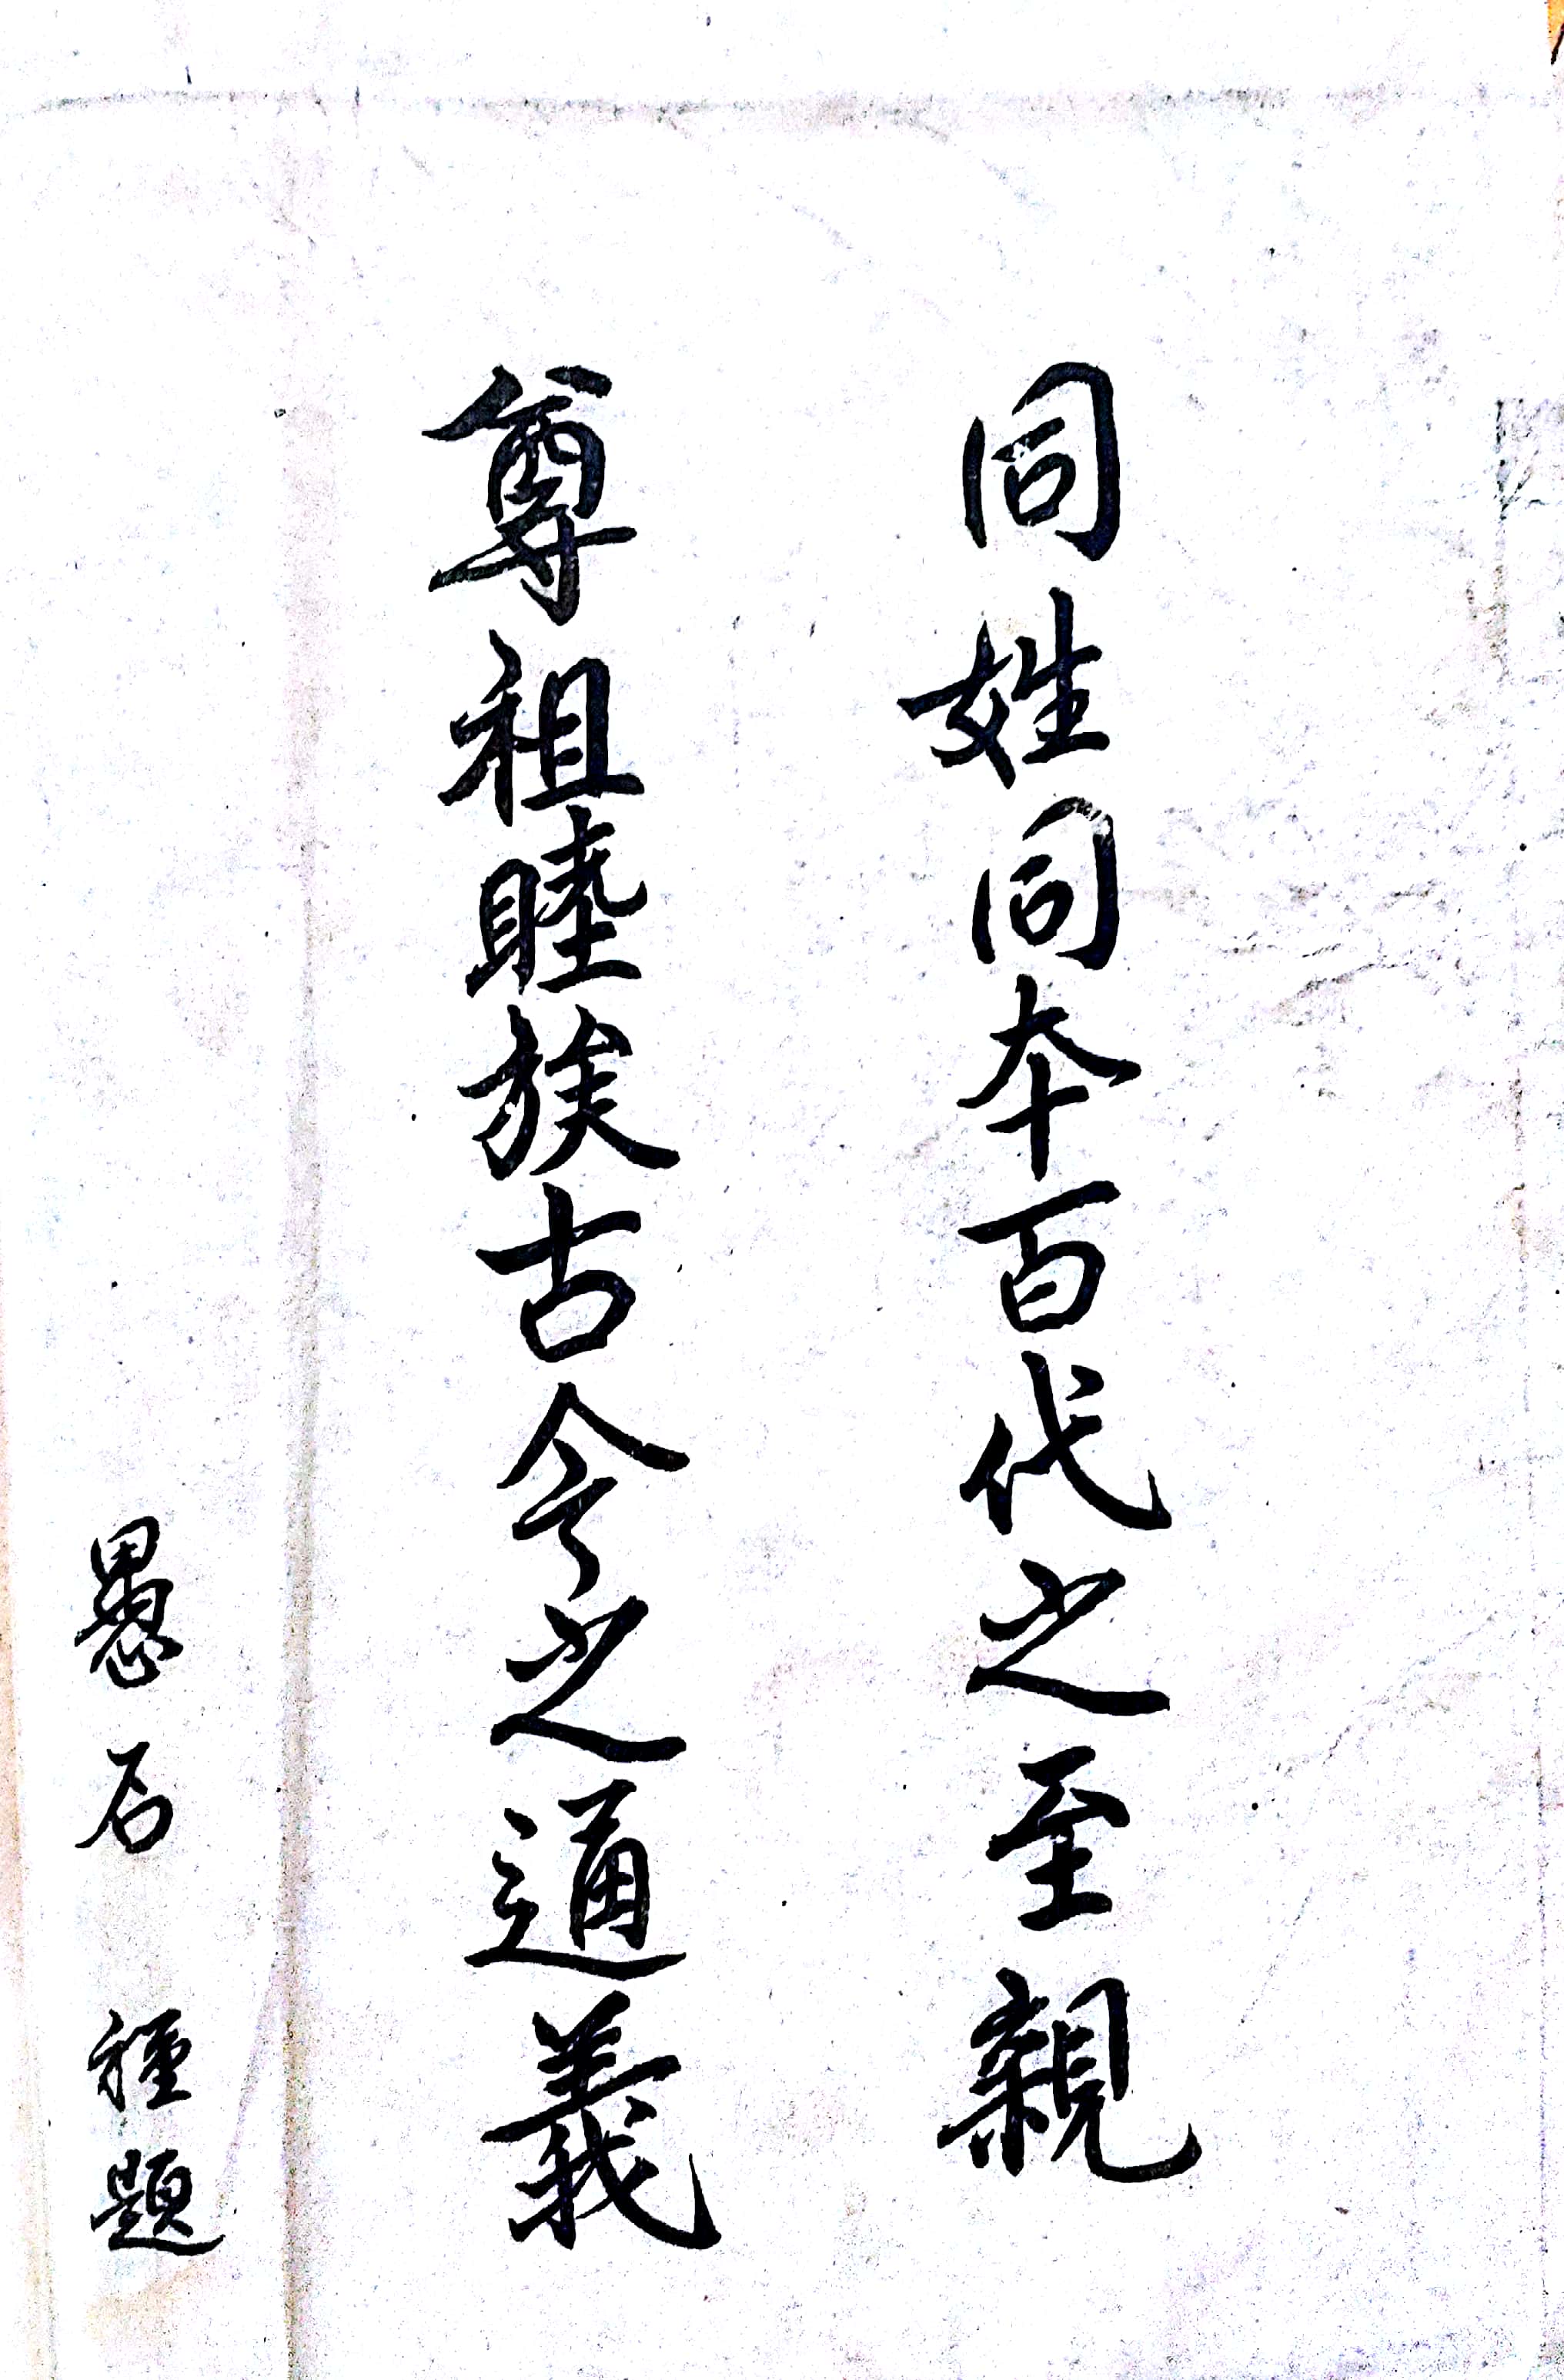 同姓同夲百代之至親
尊祖睦族古今之通義
愚石 種題